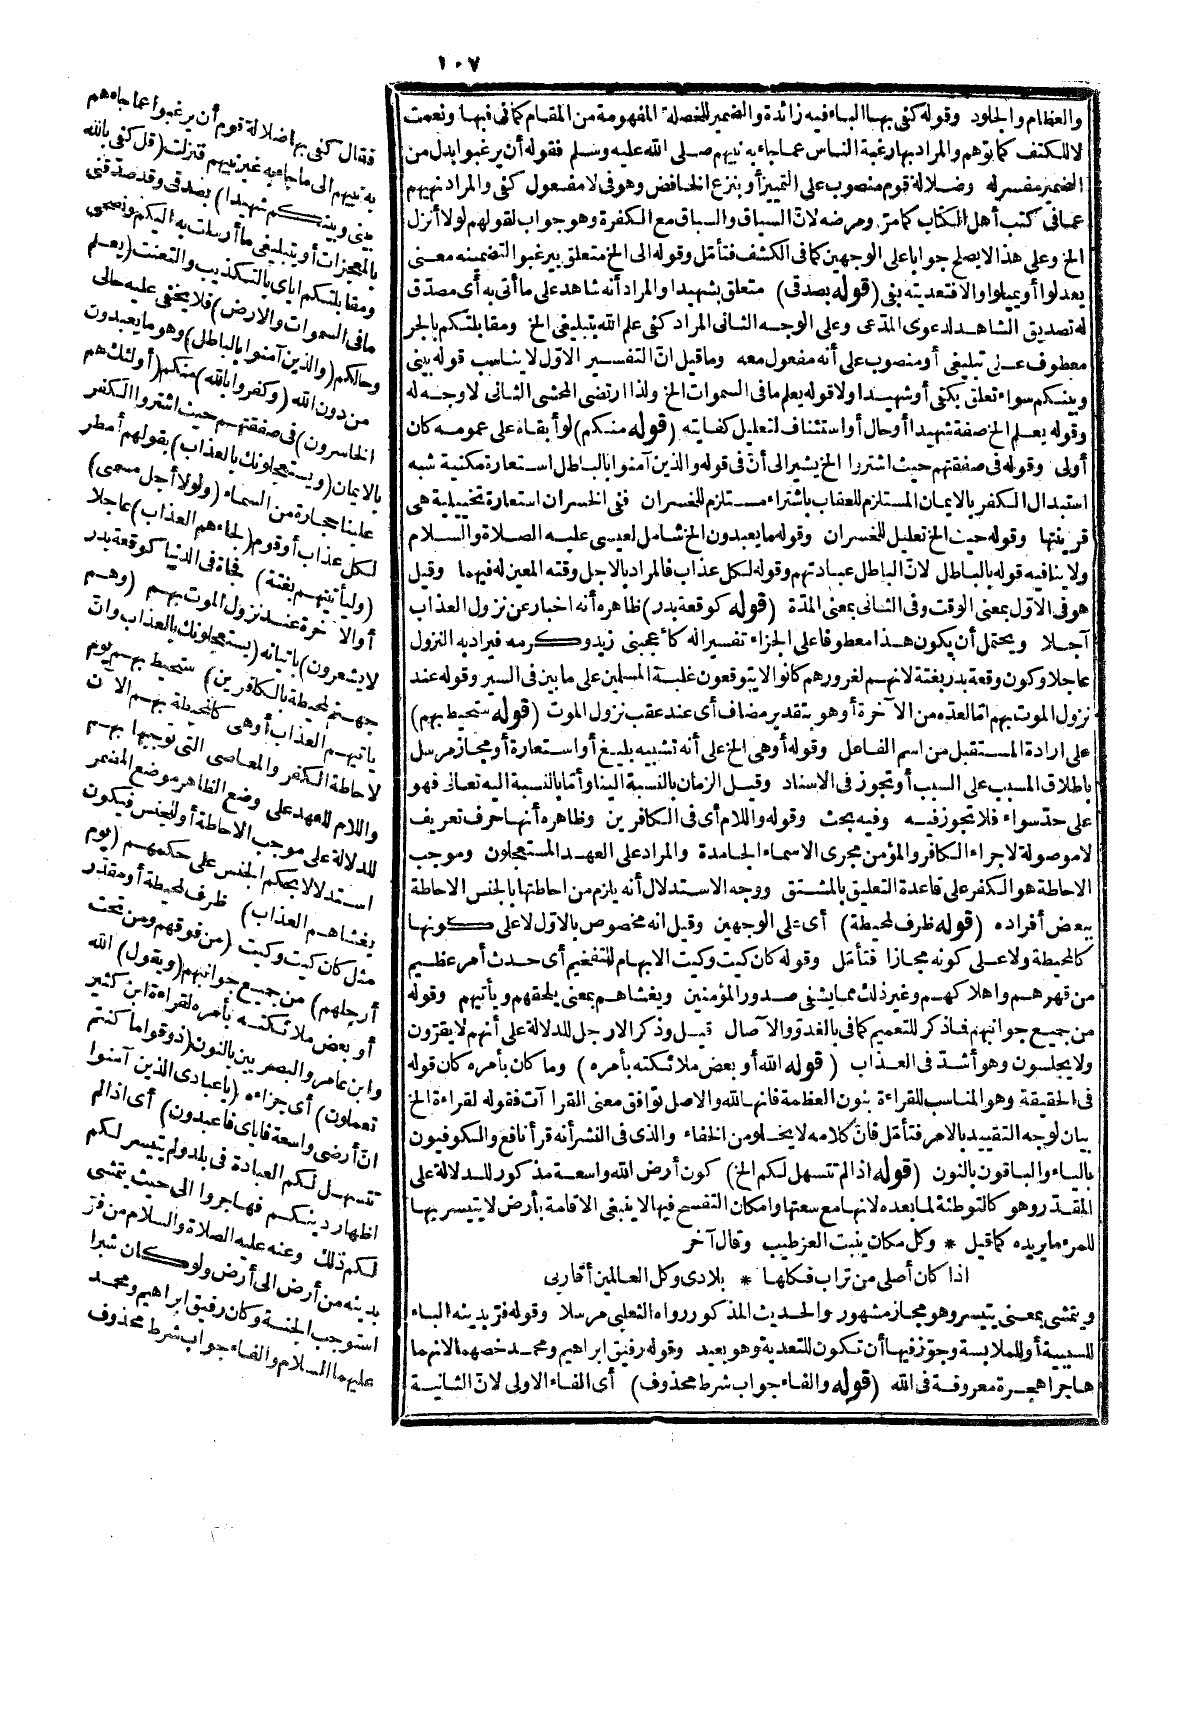 ١٠٧
والعظام والجلود وقوله كفى بها الباء فيه زائدة والضمير للخصلة المفهومة من المقام كما فى فبها ونعمت
لا للكتف كما توهم والمراد بها رغبة الناس عما جاء به نبيهم صلى الله عليه وسلم فقوله أن يرغبوا بدل من
الضمير مفسر له وضلالة قوم منصوب على التمييز أو بنزع الخافض وهو فى لا مفعول كفى والمراد نهيهم
عما فى كتب أهل الكتاب كما مرّ ومرضه لانّ السياق والسباق مع الكفرة وهو جواب لقولهم لولا أنزل
الخ وعلى هذا لا يصلح جوابا على الوجهين كما فى الكشف فتأمّل وقوله الى الخ متعلق بيرغبوا لتضمينه معنى
يعدلوا أو يميلوا والا فتعديته بفى (قوله بصدقى) متعلق بشهيدا والمراد أنه شاهد على ما أتى به أى مصدّق
له تصديق الشاهد لدعوى المدّعى وعلى الوجه الثانى المراد كفى علم الله بتبليغى الخ ومقابلتكم بالجر
معطوف على تبليغى أو منصوب على أنه مفعول معه وما قيل انّ التفسير الاوّل لا يناسب قوله بينى
وبينكم سواء تعلق بكفى أو شهيدا ولا قوله يعلم ما فى السموات الخ ولذا ارتضى المحشى الثانى لا وجه له
وقوله يعلم الخ صفة شهيدا أو حال أو استئناف لتعليل كفايته (قوله منكم) لو أبقاه على عمومه كان
أولى وقوله فى صفقتهم حيث اشتروا الخ يشير الى أنّ فى قوله والذين آمنوا بالباطل استعارة مكنية شبه
استبدال الكفر بالايمان المستلزم للعقاب باشتراء مستلزم للخسران ففى الخسران استعارة تخييلية هى
قرينتها وقوله حيث الخ تعليل للخسران وقوله ما يعبدون الخ شامل لعيسى عليه الصلاة والسلام
ولا ينافيه قوله بالباطل لانّ الباطل عبادتهم وقوله لكل عذاب فالمراد بالاجل وقته المعين له فيهما وقيل
هو فى الاوّل بمعنى الوقت وفى الثانى بمعنى المدّة (قوله كوقعة بدر) ظاهره أنه اخبار عن نزول العذاب
آجلا ويحتمل أن يكون هذا معطوفا على الجزاء تفسيرا له كأعجبنى زيد وكرمه فيراد به النزول
عاجلا وكون وقعة بدر بغتة لانهم لغرورهم كانوا لا يتوقعون غلبة المسلمين على ما بين فى السير وقوله عند
نزول الموت بهم امّا لعدّه من الآخرة أو هو بتقدير مضاف أى عند عقب نزول الموت (قوله ستحيط بهم)
على ارادة المستقبل من اسم الفاعل وقوله أو هى الخ على أنه تشبيه بليغ أو استعارة أو مجاز مرسل
باطلاق المسبب على السبب أو تجوز فى الاسناد وقيل الزمان بالنسبة الينا وأمّا بالنسبة اليه تعالى فهو
على حدّ سواء فلا تجوز فيه وفيه بحث وقوله واللام أى فى الكافرين وظاهره أنها حرف تعريف
لا موصولة لاجراء الكافر والمؤمن مجرى الاسماء الجامدة والمراد على العهد المستعجلون وموجب
الاحاطة هو الكفر على قاعدة التعليق بالمشتق ووجه الاستدلال أنه يلزم من احاطتها بالجنس الاحاطة
ببعض أفراده (قوله ظرف لمحيطة) أى على الوجهين وقيل انه مخصوص بالاوّل لا على كونها
كالمحيطة ولا على كونه مجازا فتأمّل وقوله كان كيت وكيت الابهام للتفخيم أى حدث أمر عظيم
من قهرهم واهلاكهم وغير ذلك مما يشفى صدور المؤمنين ويغشاهم بمعنى يلحقهم ويأتيهم وقوله
من جميع جوانبهم فذكر للتعميم كما فى بالغدوّ والآصال قيل وذكر الارجل للدلالة على أنهم لا يقرّون
ولا يجلسون وهو أشدّ فى العذاب (قوله الله أو بعض ملائكته بأمره) وما كان بأمره كان قوله
فى الحقيقة وهو المناسب للقراءة بنون العظمة فانها لله والاصل توافق معنى القراآت فقوله لقراءة الخ
بيان لوجه التقييد بالامر فتأمّل فانّ كلامه لا يخلو من الخفاء والذى فى النشر أنه قرأ نافع والكوفيون
بالياء والباقون بالنون (قوله اذا لم تتسهل لكم الخ) كون أرض الله واسعة مذكور للدلالة على
المقدّر وهو كالتوطئة لما بعده لانها مع سعتها وامكان التفسح فيها لا ينبغى الاقامة بأرض لا يتيسر بها
للمرء ما يريده كما قيل * وكل مكان ينبت العز طيب وقال آخر
اذا كان أصلى من تراب فكلها * بلادى وكل العالمين أقاربى
ويتمشى بمعنى يتيسر وهو مجاز مشهور والحديث المذكور رواه الثعلبى مرسلا وقوله فرّ بدينه الباء
للسببية أو للملابسة وجوّز فيها أن تكون للتعدية وهو بعيد وقوله رفيق ابراهيم ومحمد خصهما لانهما
هاجرا هجرة معروفة فى الله (قوله والفاء جواب شرط محذوف) أى الفاء الاولى لانّ الثانية
فقال كفى بها ضلالة قوم أن يرغبوا عما جاءهم
به نبيهم الى ما جاء به غير نبيهم فنزلت (قل كفى بالله
بينى وبينكم شهيدا) بصدقى وقد صدّقنى
بالمعجزات أو بتبليغى ما أرسلت به اليكم ونصحى
ومقابلتكم اياى بالتكذيب والتعنت (يعلم
ما فى السموات والارض) فلا يخفى عليه حالى
وحالكم (والذين آمنوا بالباطل) وهو ما يعبدون
من دون الله (وكفروا بالله) منكم (أولئك هم
الخاسرون) فى صفقتهم حيث اشتروا الكفر
بالايمان (ويستعجلونك بالعذاب) بقولهم أمطر
علينا حجارة من السماء (ولولا أجل مسمى)
لكل عذاب أو قوم (لجاءهم العذاب) عاجلا
(وليأتينهم بغتة) فجأة فى الدنيا كوقعة بدر
أو الآخرة عند نزول الموت بهم (وهم
لا يشعرون) باتيانه (يستعجلونك بالعذاب وانّ
جهنم لمحيطة بالكافرين) ستحيط بهم يوم
يأتيهم العذاب أو هى كالمحيطة بهم الآن
لاحاطة الكفر والمعاصى التى توجبها بهم
واللام للعهد على وضع الظاهر موضع المضمر
للدلالة على موجب الاحاطة أو للجنس فيكون
استدلالا بحكم الجنس على حكمهم (يوم
يغشاهم العذاب) ظرف لمحيطة أو مقدّر
مثل كان كيت وكيت (من فوقهم ومن تحت
أرجلهم) من جميع جوانبهم (ويقول) الله
أو بعض ملائكته بأمره لقراءة ابن كثير
وابن عامر والبصريين بالنون (ذوقوا ما كنتم
تعملون) أى جزاءه (يا عبادى الذين آمنوا
انّ أرضى واسعة فاياى فاعبدون) أى اذا لم
تتسهل لكم العبادة فى بلد ولم يتيسر لكم
اظهار دينكم فهاجروا الى حيث يتمشى
لكم ذلك وعنه عليه الصلاة والسلام من فرّ
بدينه من أرض الى أرض ولو كان شبرا
استوجب الجنة وكان رفيق ابراهيم ومحمد
عليهما السلام والفاء جواب شرط محذوف